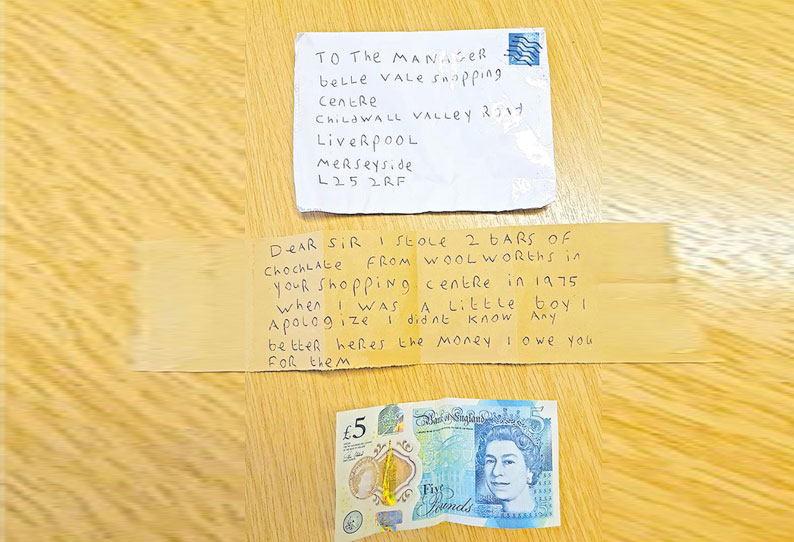 TO The MANAGER
belle VALE shopping
CentRE
CHILDWALL VALLEY ROAD
LIVeRPOOL
MERSeyside
L25 2RF
DeAR SIR I Stole 2 bARS OF
CHOCHLAte FROM WOOLWORthS in
YOUR Shopping centre in 1975
when I WAS A little boy I
Apologize I didnt know Any
better heres the Money I owe you
FOR theM
£5
Bank of England
5
Five
Pounds